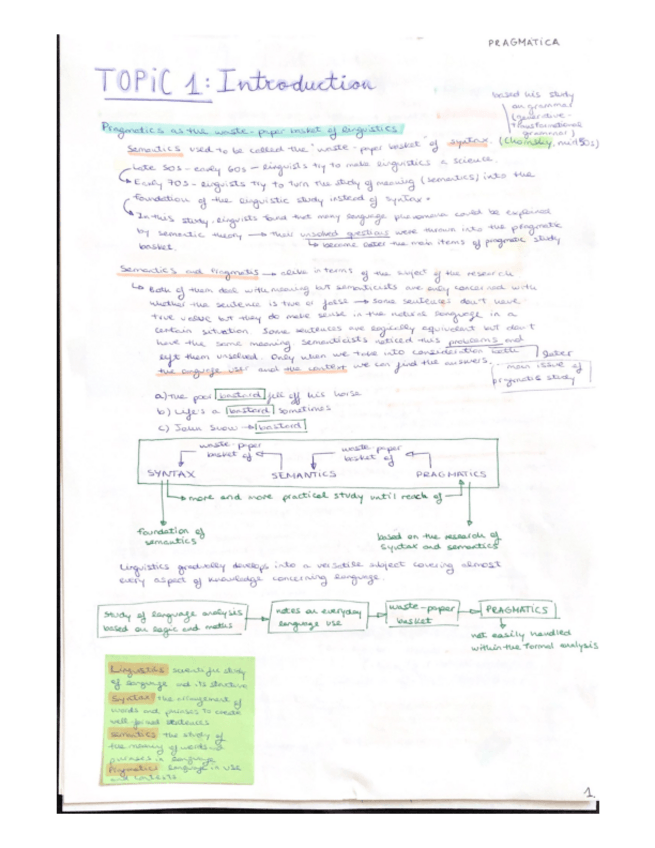 PRAGMATICA
TOPIC 1: Introduction
based his study
on grammar
(generative-
transformational
grammar)
(Chomsky, mid 50s)
Pragmatics as the waste-paper basket of linguistics
Semantics used to be called the "waste-paper basket" of syntax.
Late 50s - early 60s - linguists try to make linguistics a science.
Early 70s - linguists try to turn the study of meaning (semantics) into the
foundation of the linguistic study instead of syntax.
In this study, linguists found that many language phenomena could be explained
by semantic theory → their unsolved questions were thrown into the pragmatic
basket.
become later the main items of pragmatic study
Semantics and Pragmatics → alike in terms of the subject of the research
Both of them deal with meaning but semanticists are only concerned with
whether the sentence is true or false → some sentences don't have
true value but they do make sense in the natural language in a
certain situation. Some sentences are logically equivalent but don't
have the same meaning semanticists noticed this problems and
left them unsolved. Only when we take into consideration both
the language user and the context we can find the answers.
later
main issue of
pragmatic study
a) The poor bastard fell off his horse
b) Life's a bastard sometimes
c) John Snow → bastard
waste-paper
basket of
waste-paper
basket of
SYNTAX SEMANTICS PRAGMATICS
more and more practical study until reach of
foundation of
semantics
based on the research of
syntax and semantics
Linguistics gradually develops into a versatile subject covering almost
every aspect of knowledge concerning language.
study of language analysis
based on logic and maths
notes on everyday
language use
waste-paper
basket
PRAGMATICS
not easily handled
within the formal analysis
Linguistics scientific study
of language and its structure
Syntax the arrangement of
words and phrases to create
well-formed sentences
Semantics the study of
the meaning of words and
phrases in language
Pragmatics language in use
and contexts
1